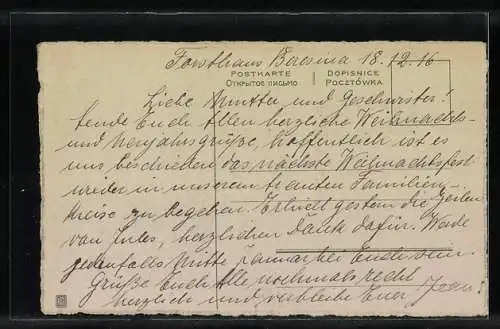 Forsthaus Beresina 18.12.16
POSTKARTE | DOPISNICE
ОТКРЫТОЕ ПИСЬМО | POCZTÓWKA
Liebe Mutter und Geschwister!
Sende Euch Allen herzliche Weihnachts-
und Neujahrsgrüße, hoffentlich ist es
uns beschieden das nächste Weihnachtsfest
wieder in unserem trauten Familien-
kreise zu begehen. Erhielt gestern die Zeilen
von Jules, herzlichen Dank dafür. Werde
jedenfalls Mitte Januar bei Euch sein.
Grüße Euch Alle nochmals recht
herzlich und verbleibe Euer Jean